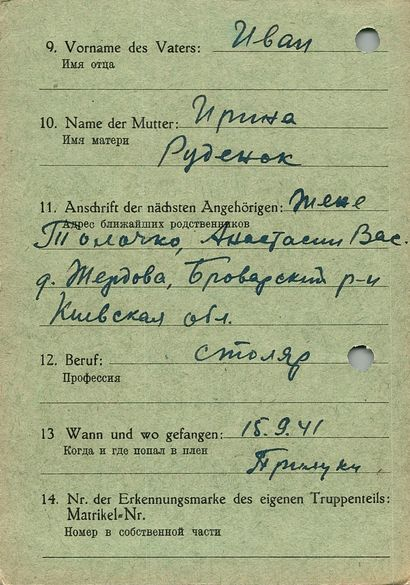 9. Vorname des Vaters: Иван
Имя отца
10. Name der Mutter: Ирина
Имя матери
Руденок
11. Anschrift der nächsten Angehörigen: Жене
Адрес ближайших родственников
Толочко, Анастасии Вас.
д. Жердова, Броварский р-н
Киевская обл.
12. Beruf: столяр
Профессия
13 Wann und wo gefangen: 15.9.41
Когда и где попал в плен
Прилуки
14. Nr. der Erkennungsmarke des eigenen Truppenteils:
Matrikel-Nr.
Номер в собственной части